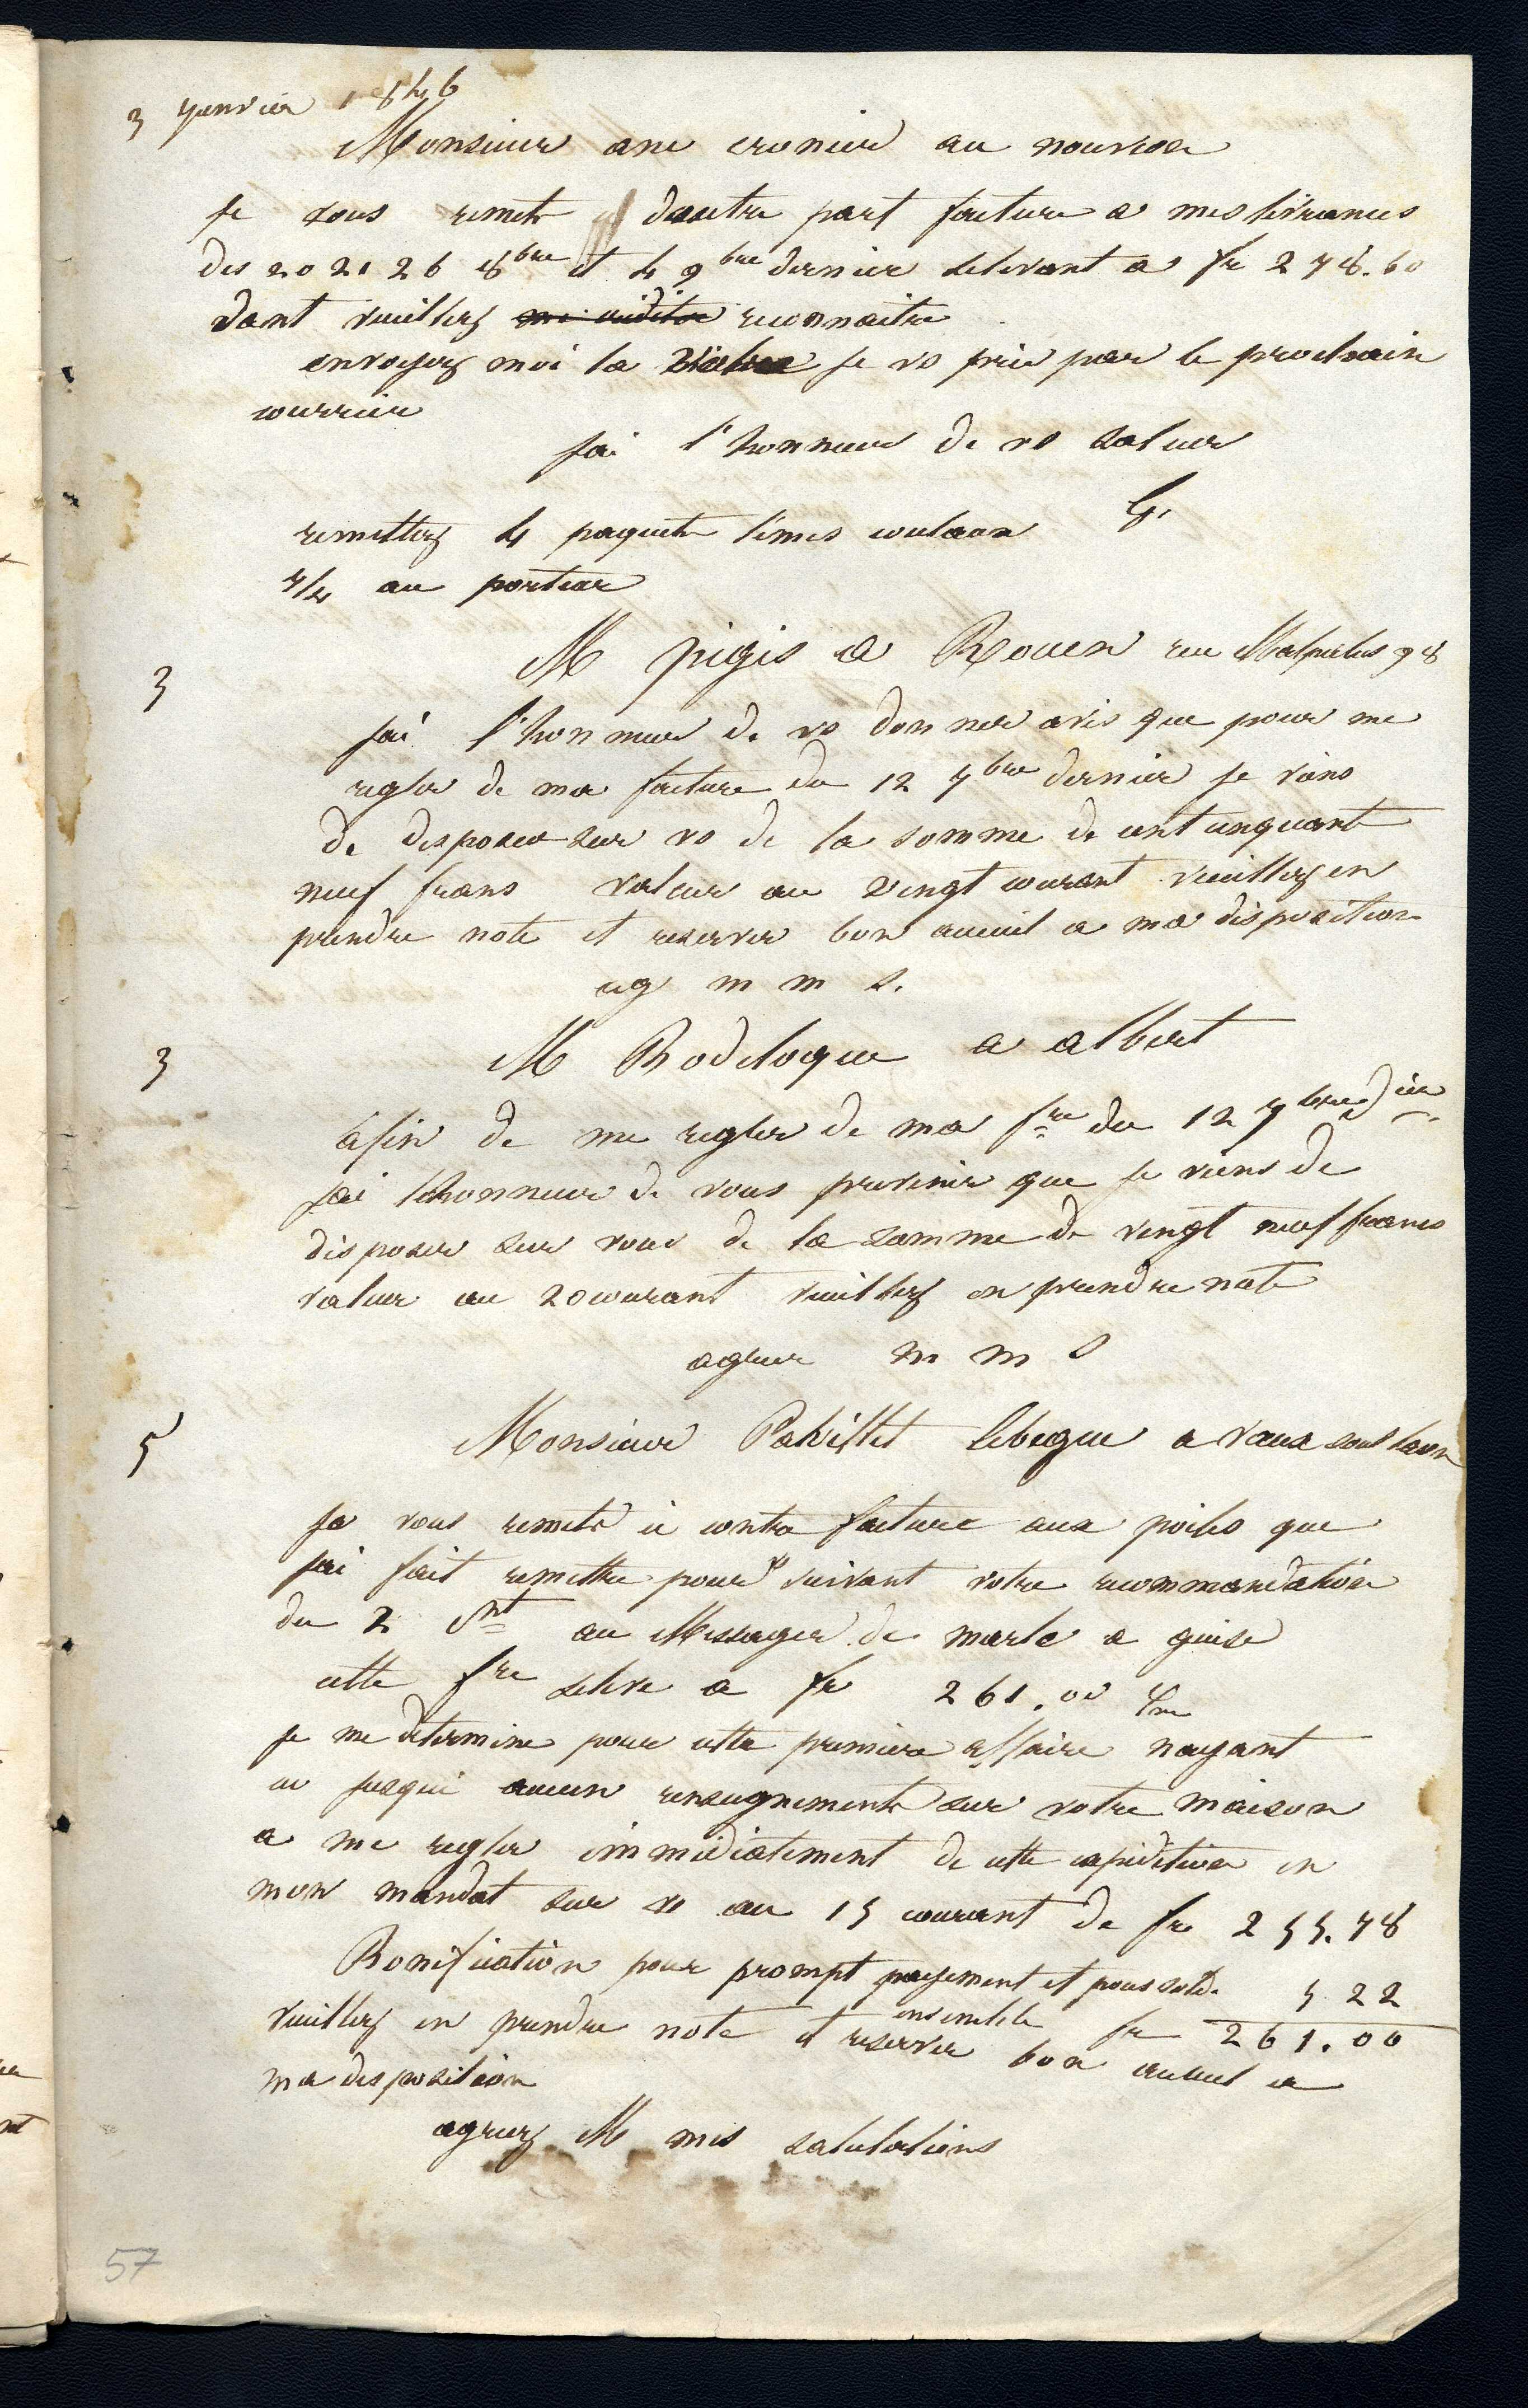 3 janvier 1846
Monsieur ane cronier au nouvion
je vous remets d'autre part facture a mes livrances
des 20 21 26 8bre et 4 9bre dernier selevant a fr 278.60
dont veuillez me crediter reconnaitre
envoyez moi la je vs prie par le prochain
courrier
jai l'honneur de vs saluer
remettez 4 paquets limes couleaux G.
7/4 au porteur
3
M pigis a Rouen rue Malpalus 98
jai l'honneur de vs donner avis que pour me
regler de ma facture du 12 7bre dernier je viens
de disposer sur vs de la somme de cent cinquant
neuf frans valeur au vingt courant veuillez en
prendre note et reserver bon acueil a ma disposition
ag m m s.
3
M Rodeloque a albert
afin de me regler de ma fre du 12 7bre dier
jai lhonneur de vous prevenir que je viens de
disposer sur vous de la somme de vingt neuf francs
valeur au 20 courant veuillez en prendre note
agreer m m s
5
Monsieur Pakillet lebegue a vaux sous laon
je vous remets ci contre facture aux poiles que
jai fait remettre pour vs suivant votre recommandation
du 2 ct au Messager de marle a guise
cette fre selve a fr 261.00 
je me determine pour cette premiere affaire nayant
eu jusqui aucun renseignements sur votre maison
a me regler immediatement de cette expedition en
mon mandat sur vs au 15 courant de fr 255.78
Bonification pour prompt payement et pour solde 5 22
ensemble fr 261.00
veuillez en prendre note et reserver bon acueul a
ma disposition
agreez M mes salutations
57